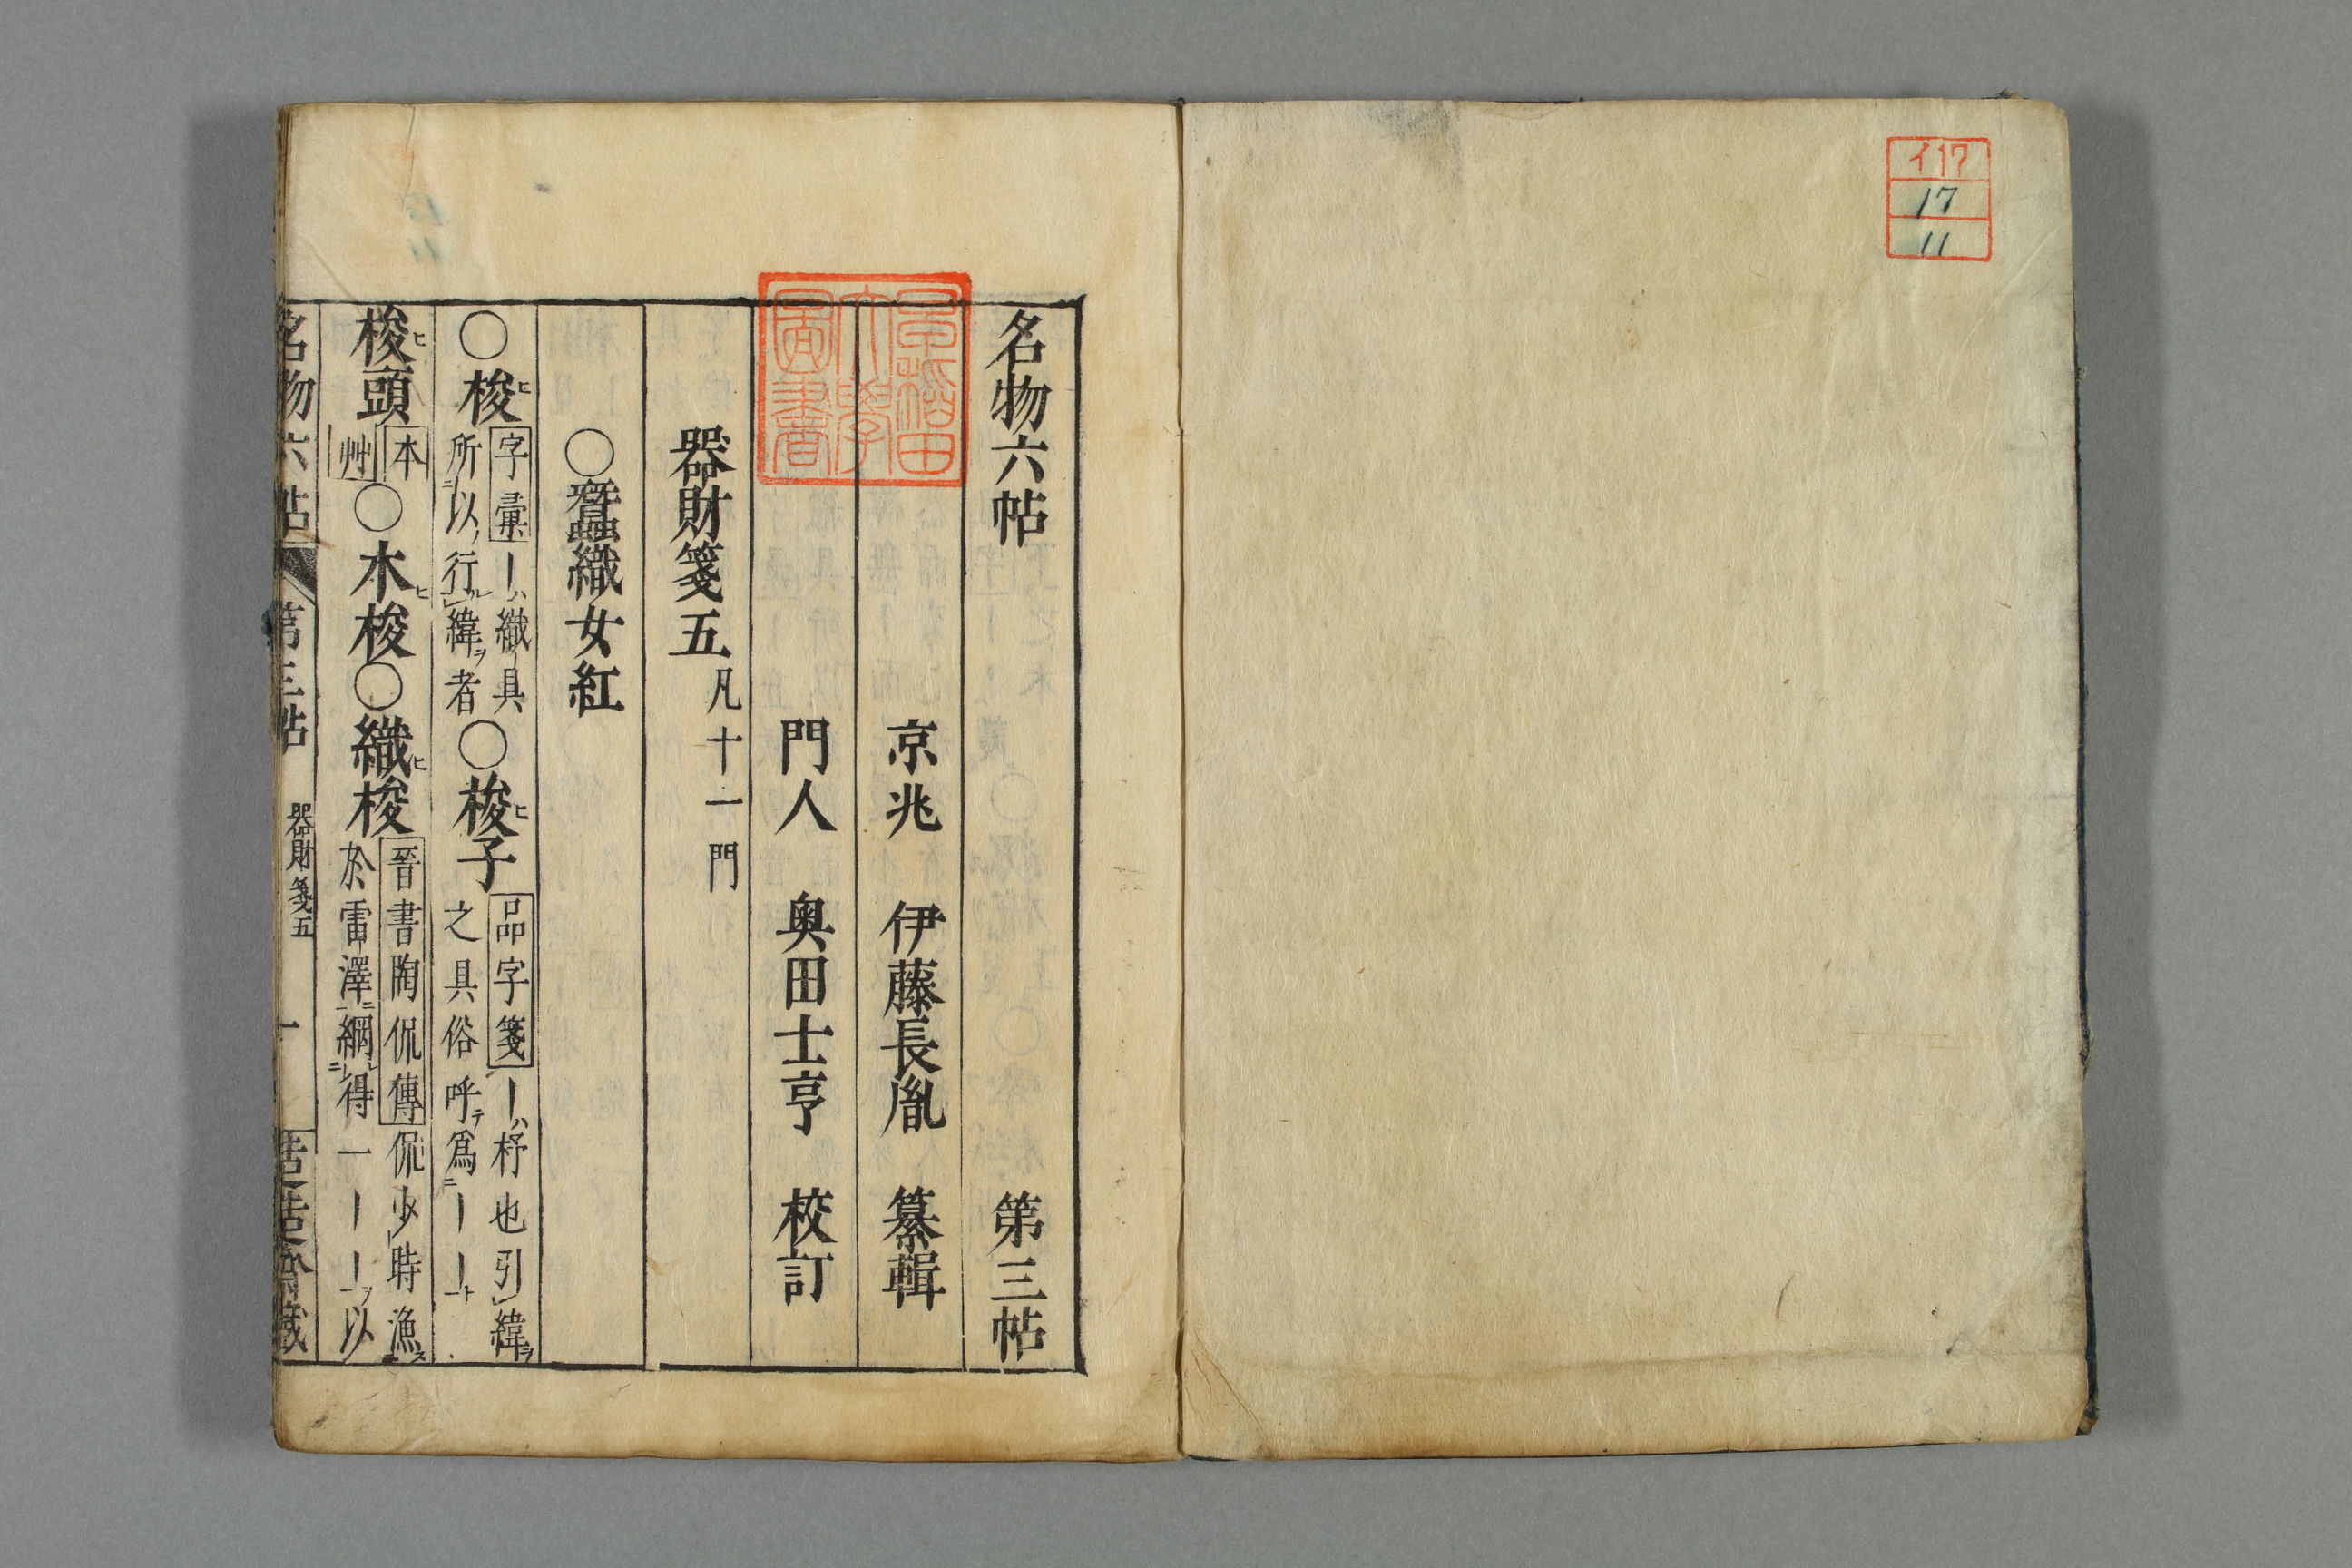 イ17
17
11
名物六帖 第三帖
京兆 伊藤長胤 纂輯
門人 奥田士亨 校訂
早稲田
大學
圖書
器財箋五 凡十一門
○蠶織女紅
○梭ヒ 字彙ーハ織具
所以ノ行ル緯ヲ者
○梭ヒ子 品字箋ーハ杼也引緯ヲ
之具俗呼テ爲ニーート
梭ヒ頭 本
艸
○木梭ヒ○織梭ヒ 晉書陶侃傳侃少時漁ス
於雷澤ニ網ニ得一ーーヲ以
名物六帖 第三帖 器財箋五 一